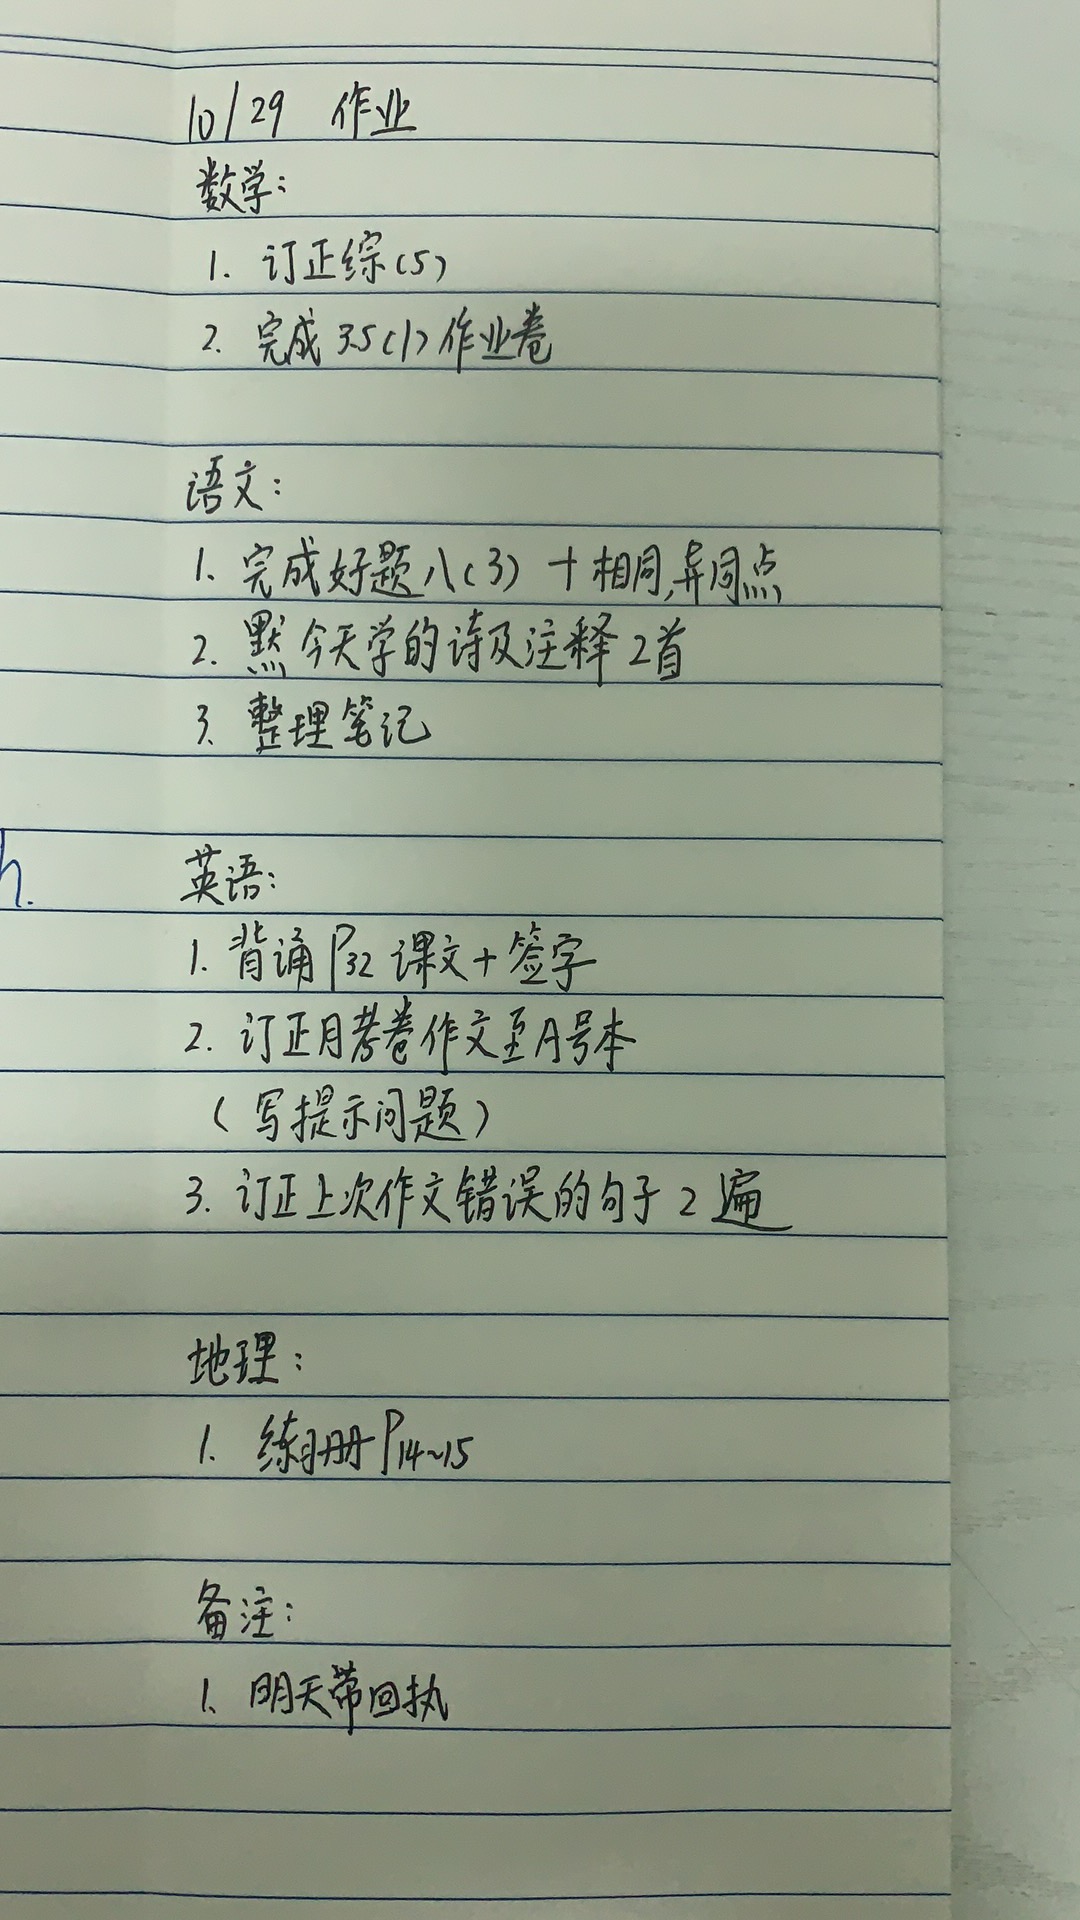 10/29 作业
数学:
1. 订正综(5)
2. 完成 3.5(1) 作业卷
语文:
1. 完成好题八(3) + 相同,异同点
2. 默今天学的诗及注释 2首
3. 整理笔记
英语:
1. 背诵 P32 课文 + 签字
2. 订正月考卷作文至A号本
(写提示问题)
3. 订正上次作文错误的句子 2 遍
地理:
1. 练习册 P14~15
备注:
1. 明天带回执
h.